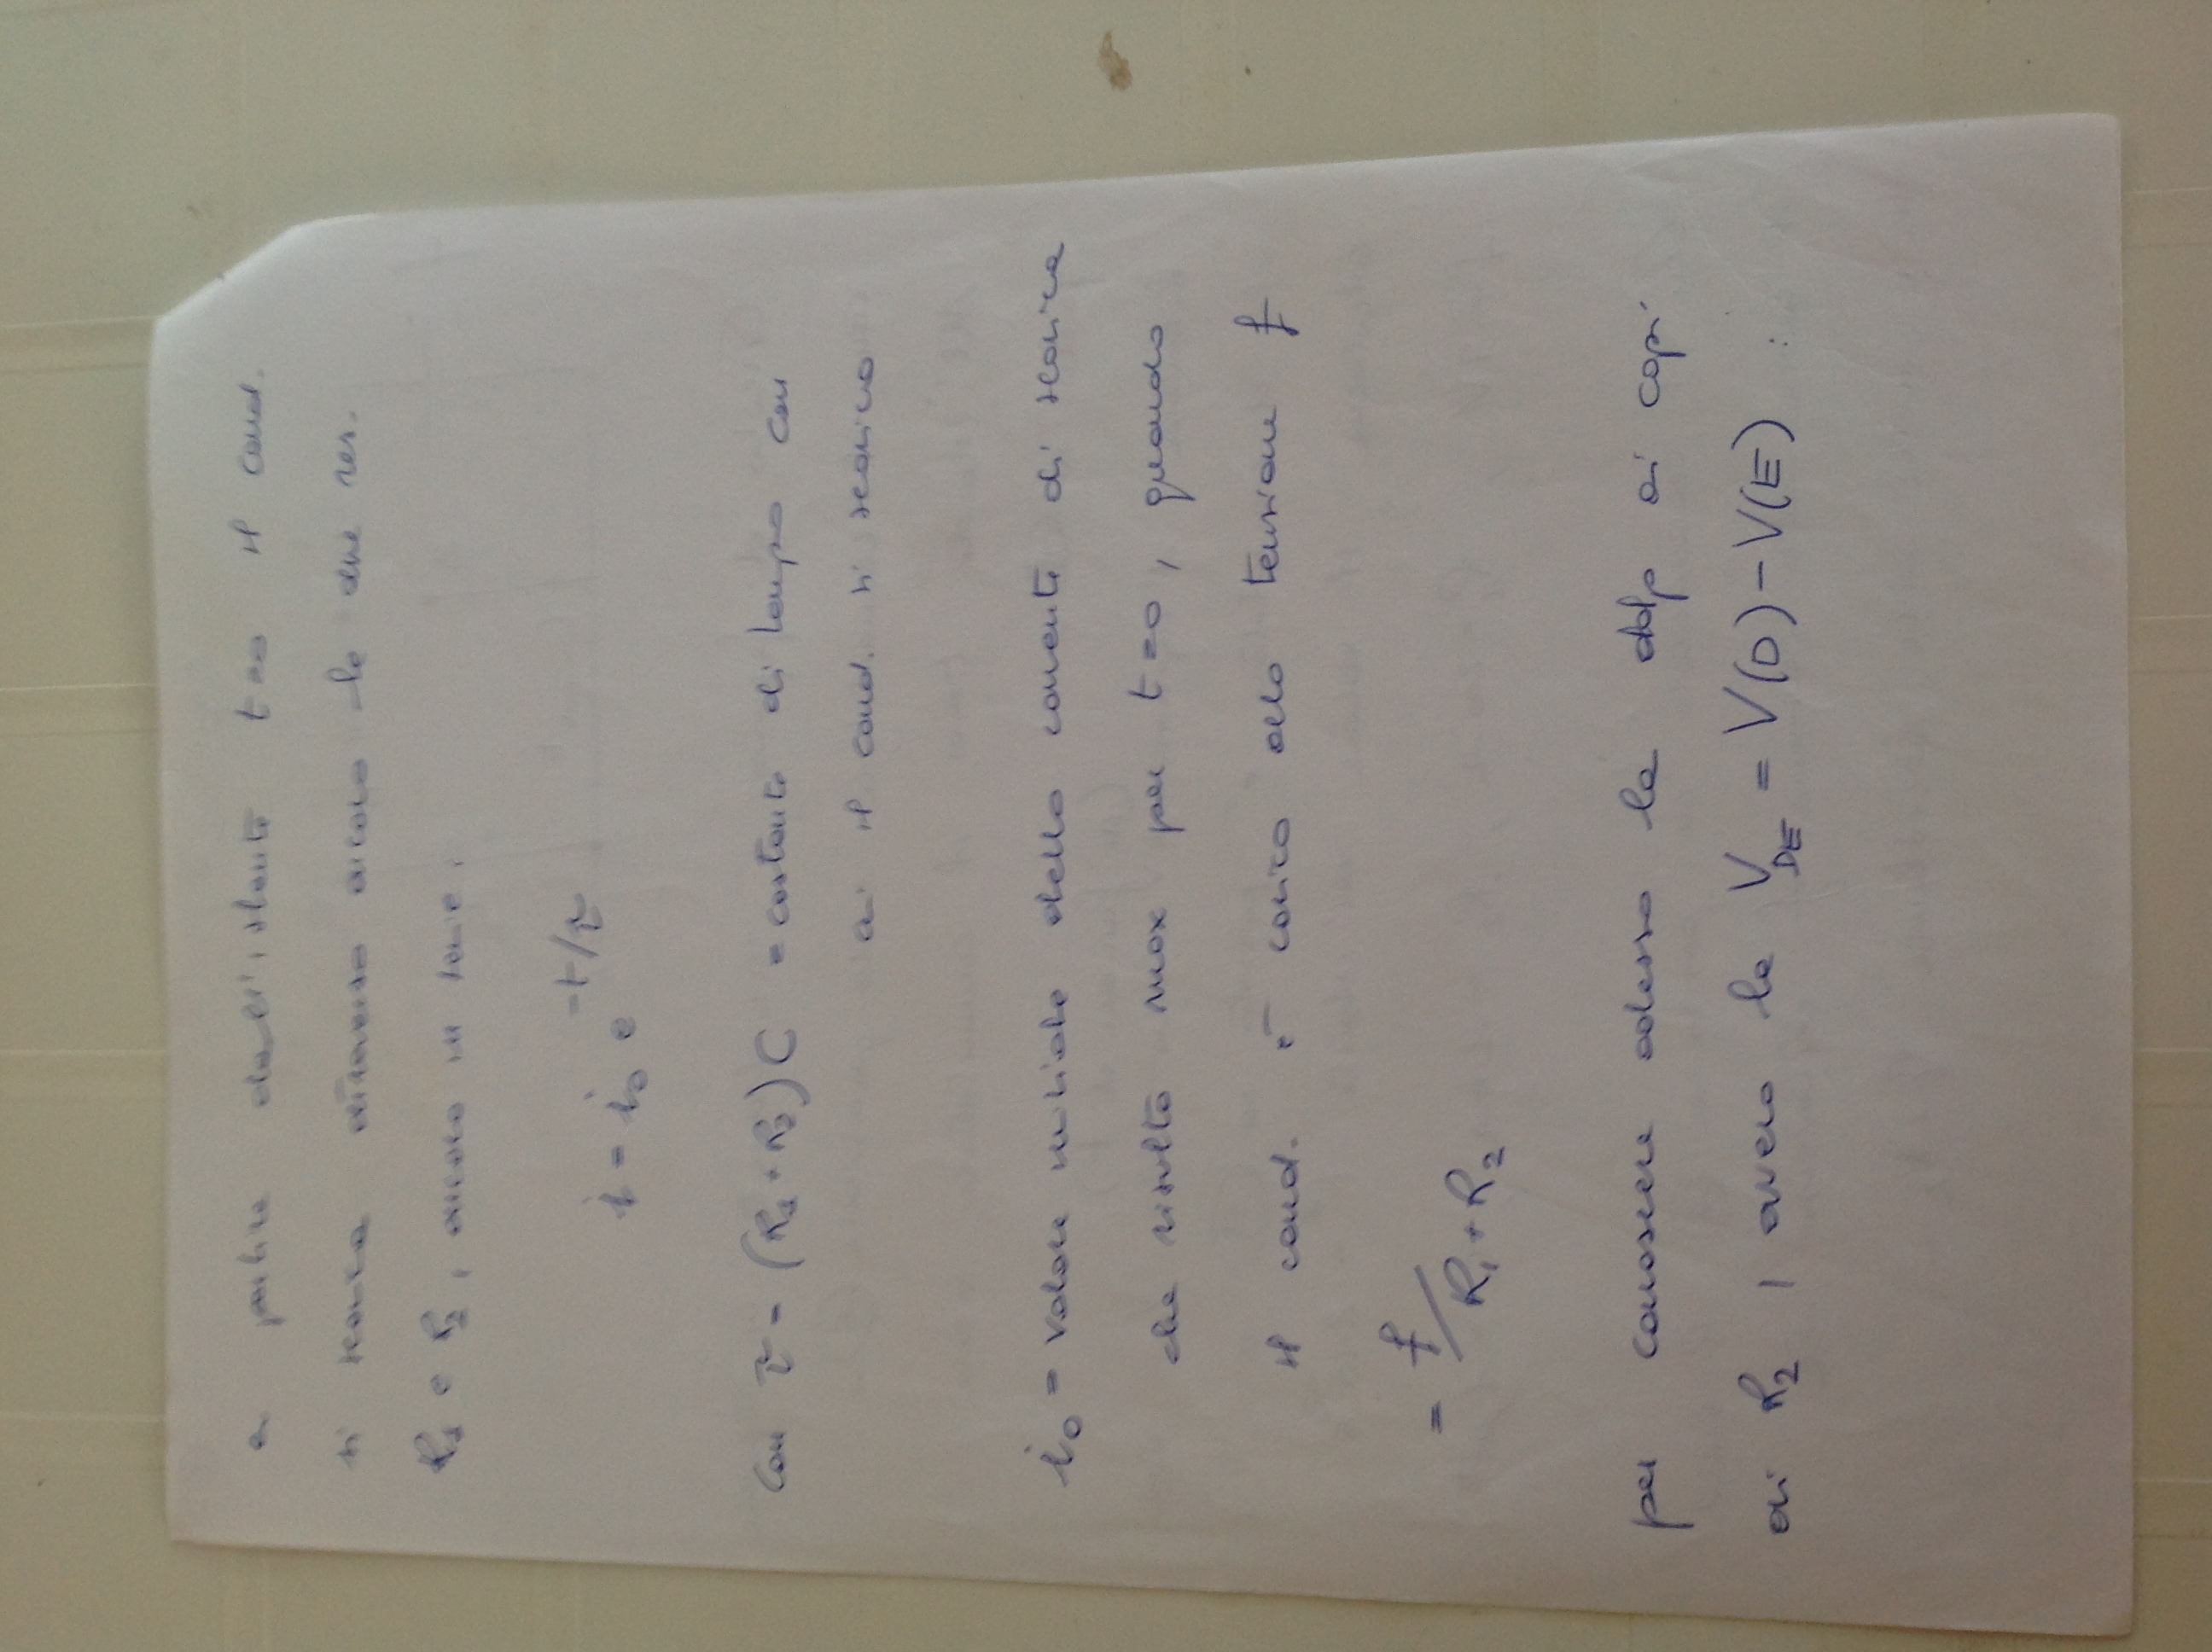 a partire dall'istante t=0 il cond.
si scarica attraverso ancora le due res.
R₁ e R₂, ancora in serie.
i = i₀ e^(-t/τ)
con τ = (R₁+R₂)C = costante di tempo con
cui il cond. si scarica
i₀ = valore iniziale della corrente di scarica
che risulta max per t=0, quando
il cond. è carico alla tensione f
= f/R₁+R₂
per conoscere adesso la ddp ai capi
di R₂, ovvero la V_DE = V(D)-V(E) :